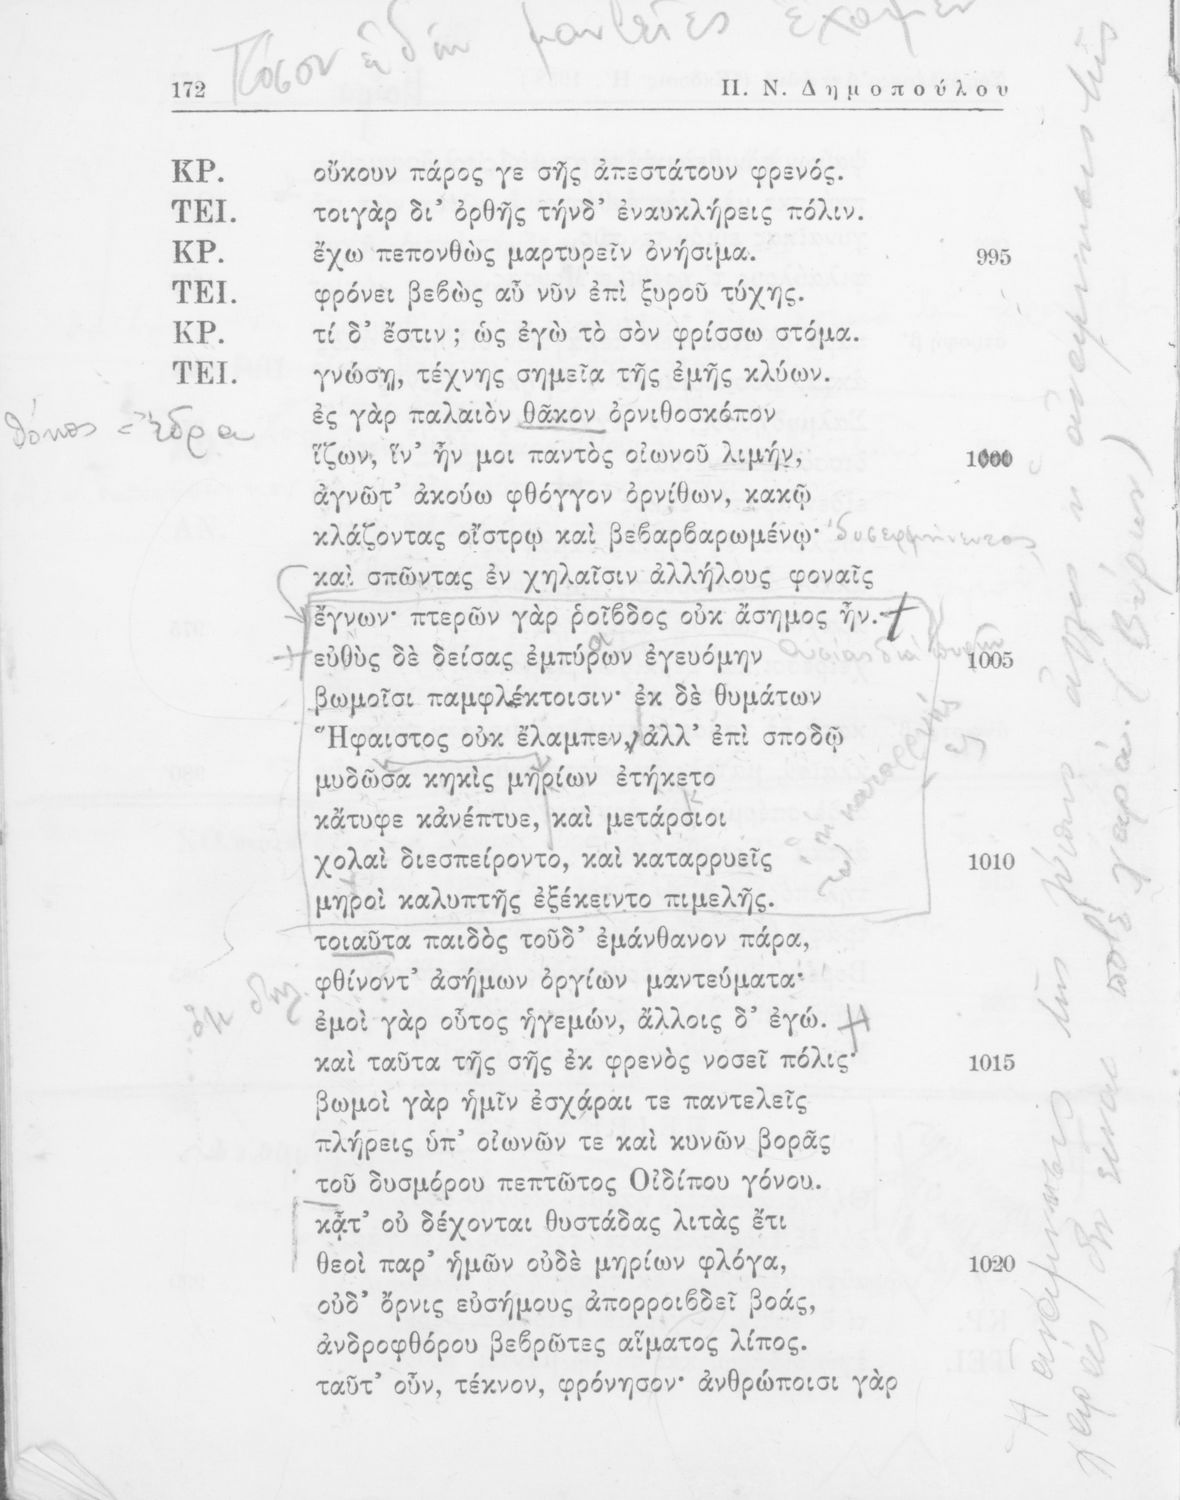 Πόσον εἰδῶν μαντεῖες ἔχομεν
172
Π. Ν. Δημοπούλου
ΚΡ. οὔκουν πάρος γε σῆς ἀπεστάτουν φρενός.
ΤΕΙ. τοιγὰρ δι’ ὀρθῆς τήνδ’ ἐναυκλήρεις πόλιν.
ΚΡ. ἔχω πεπονθὼς μαρτυρεῖν ὀνήσιμα. 995
ΤΕΙ. φρόνει βεβὼς αὖ νῦν ἐπὶ ξυροῦ τύχης.
ΚΡ. τί δ’ ἔστιν; ὡς ἐγὼ τὸ σὸν φρίσσω στόμα.
ΤΕΙ. γνώσῃ, τέχνης σημεῖα τῆς ἐμῆς κλύων.
ἐς γὰρ παλαιὸν θᾶκον ὀρνιθοσκόπον
θάκος = ἕδρα
ἵζων, ἵν’ ἦν μοι παντὸς οἰωνοῦ λιμήν, 1000
ἀγνῶτ’ ἀκούω φθόγγον ὀρνίθων, κακῷ
κλάζοντας οἴστρῳ καὶ βεβαρβαρωμένῳ· δυσερμήνευτος
καὶ σπῶντας ἐν χηλαῖσιν ἀλλήλους φοναῖς
ἔγνων· πτερῶν γὰρ ῥοῖβδος οὐκ ἄσημος ἦν.
εὐθὺς δὲ δείσας ἐμπύρων ἐγευόμην 1005
βωμοῖσι παμφλέκτοισιν· ἐκ δὲ θυμάτων
Ἥφαιστος οὐκ ἔλαμπεν, ἀλλ’ ἐπὶ σποδῷ
μυδῶσα κηκὶς μηρίων ἐτήκετο
κἄτυφε κἀνέπτυε, καὶ μετάρσιοι
χολαὶ διεσπείροντο, καὶ καταρρυεῖς 1010
μηροὶ καλυπτῆς ἐξέκειντο πιμελῆς.
τοιαῦτα παιδὸς τοῦδ’ ἐμάνθανον πάρα,
φθίνοντ’ ἀσήμων ὀργίων μαντεύματα·
ἐμοὶ γὰρ οὗτος ἡγεμών, ἄλλοις δ’ ἐγώ.
καὶ ταῦτα τῆς σῆς ἐκ φρενὸς νοσεῖ πόλις· 1015
βωμοὶ γὰρ ἡμῖν ἐσχάραι τε παντελεῖς
πλήρεις ὑπ’ οἰωνῶν τε καὶ κυνῶν βορᾶς
τοῦ δυσμόρου πεπτῶτος Οἰδίπου γόνου.
κᾆτ’ οὐ δέχονται θυστάδας λιτὰς ἔτι
θεοὶ παρ’ ἡμῶν οὐδὲ μηρίων φλόγα, 1020
οὐδ’ ὄρνις εὐσήμους ἀπορροιβδεῖ βοάς,
ἀνδροφθόρου βεβρῶτες αἵματος λίπος.
ταῦτ’ οὖν, τέκνον, φρόνησον· ἀνθρώποισι γὰρ
Ἡ ἀνάμνησις τῆς λύπης εἶναι λύπη ἡ ἀνάμνησις τῆς
χαρᾶς δὲν εἶναι ποτὲ χαρά. (Βύρων)